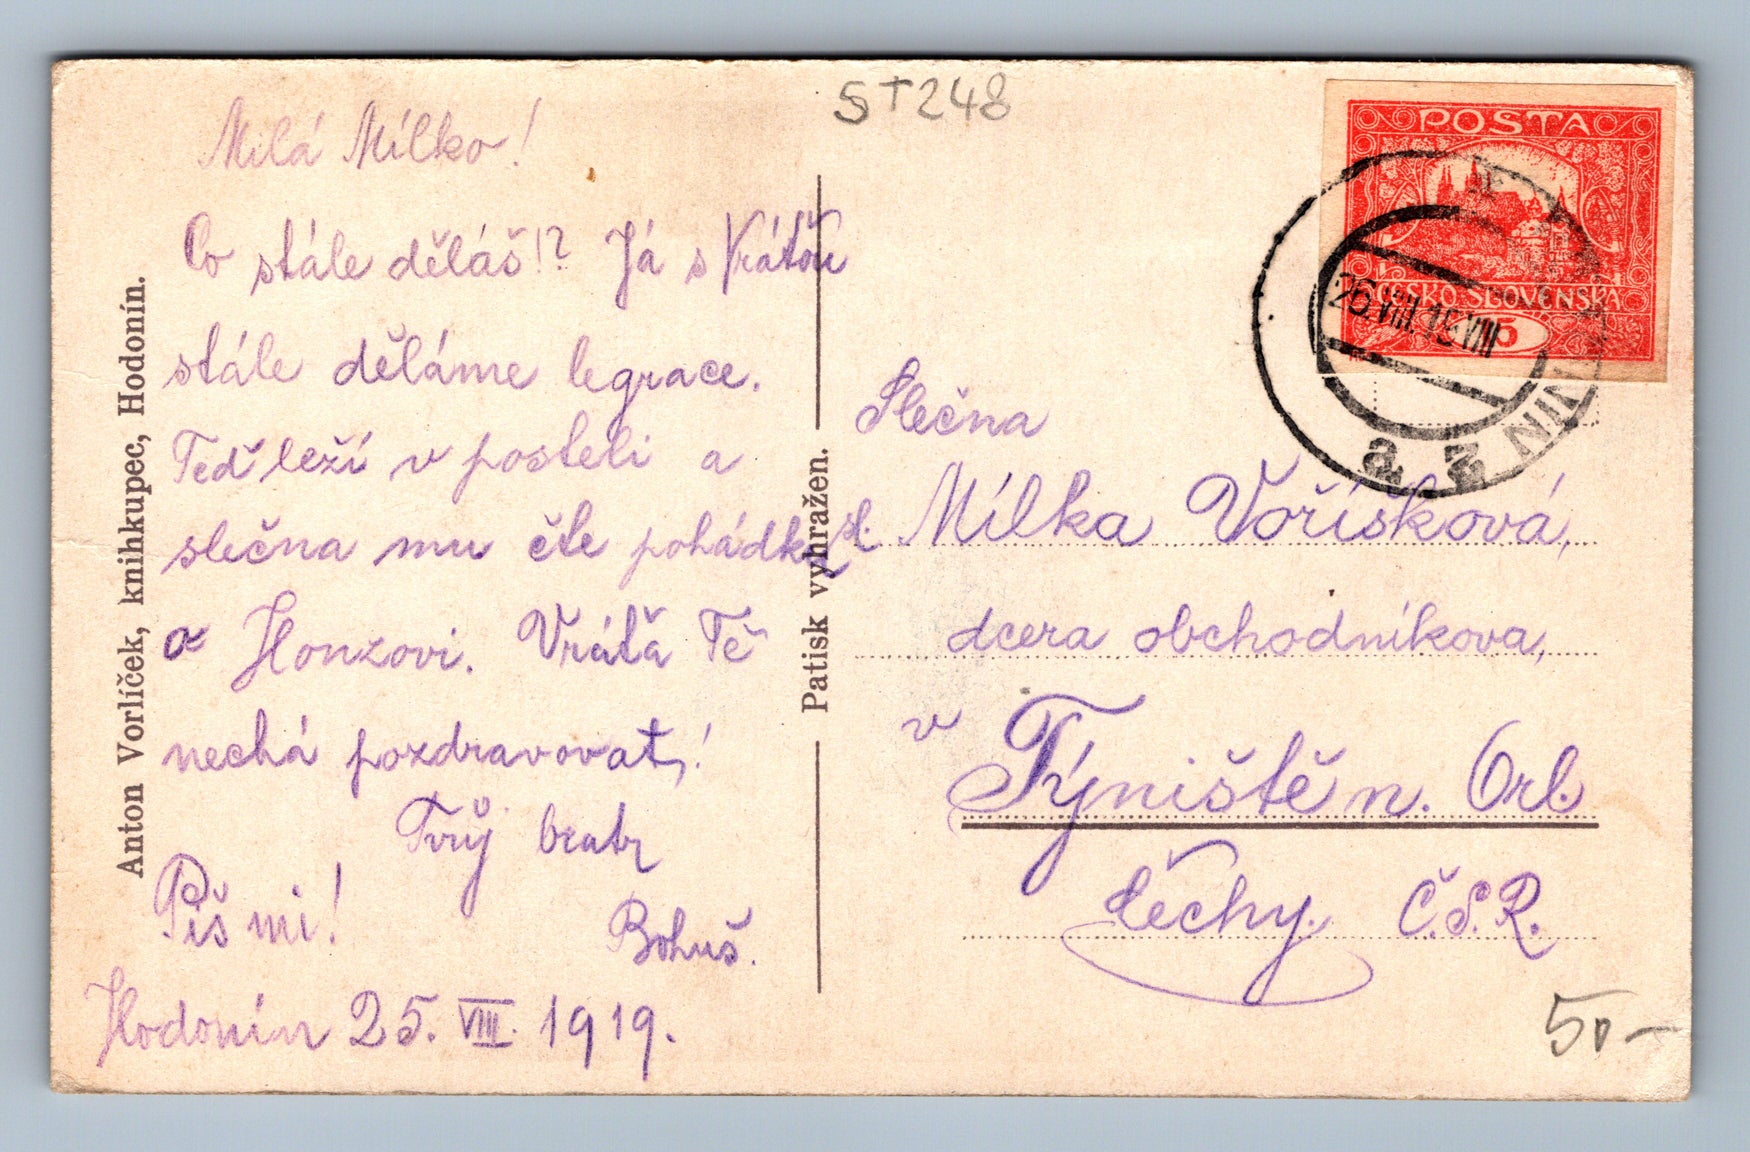 ST248
Milá Mílko!
Co stále děláš!? Já s Vráťou
stále děláme legrace.
Teď leží v posteli a
slečna mu čte pohádky
o Honzovi. Vráťa Tě
nechá pozdravovat!
Tvůj bratr
Piš mi!
Bohuš.
Hodonín 25. VIII. 1919.
Anton Vorlíček, knihkupec, Hodonín.
Patisk vyhražen.
POSTA
ČESKO-SLOVENSKÁ
15
26.VIII.19.VIII
a
Slečna
sl. Mílka Voříšková,
dcera obchodníkova,
v Týniště n. Orl.
Čechy. Č.S.R.
50-